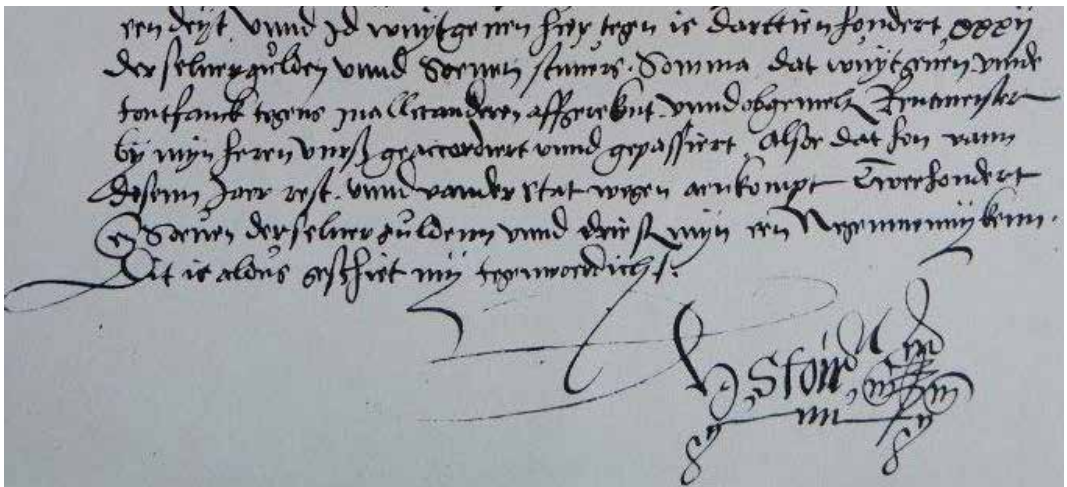 een deyt vnnd Id wuytgeuen hier tegen is darttien hondert xxxij
der seluer gulden vnnd Soeuen stuuers. Somma dat wuytgeuen vnnde
tontfanck tegens malleanderen affgerekent vnnd obgemelt Rentmeister
by mijn heren vurß geaccordiert vnnd gepassiert, Alsoe dat hon vann
desenn Jaer rest vnnd vander stat wegen aenkompt Tweehondert
en Soeuen der seluer guldenn vnnd drie st mijn een
Dit is aldus geschiet mij tegenwoerdich